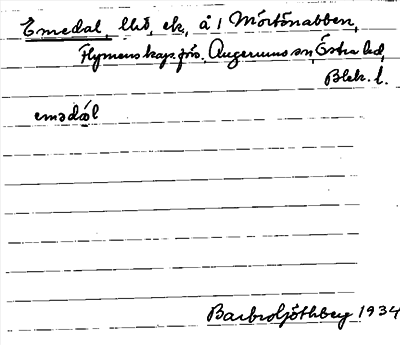 Emedal, lhd, ek, å 1 Mörtönabben,
Flymens kap.förs. Augerums sn, Östra hd,
Blek. l.
emədal
Barbro Ljöthberg 1934